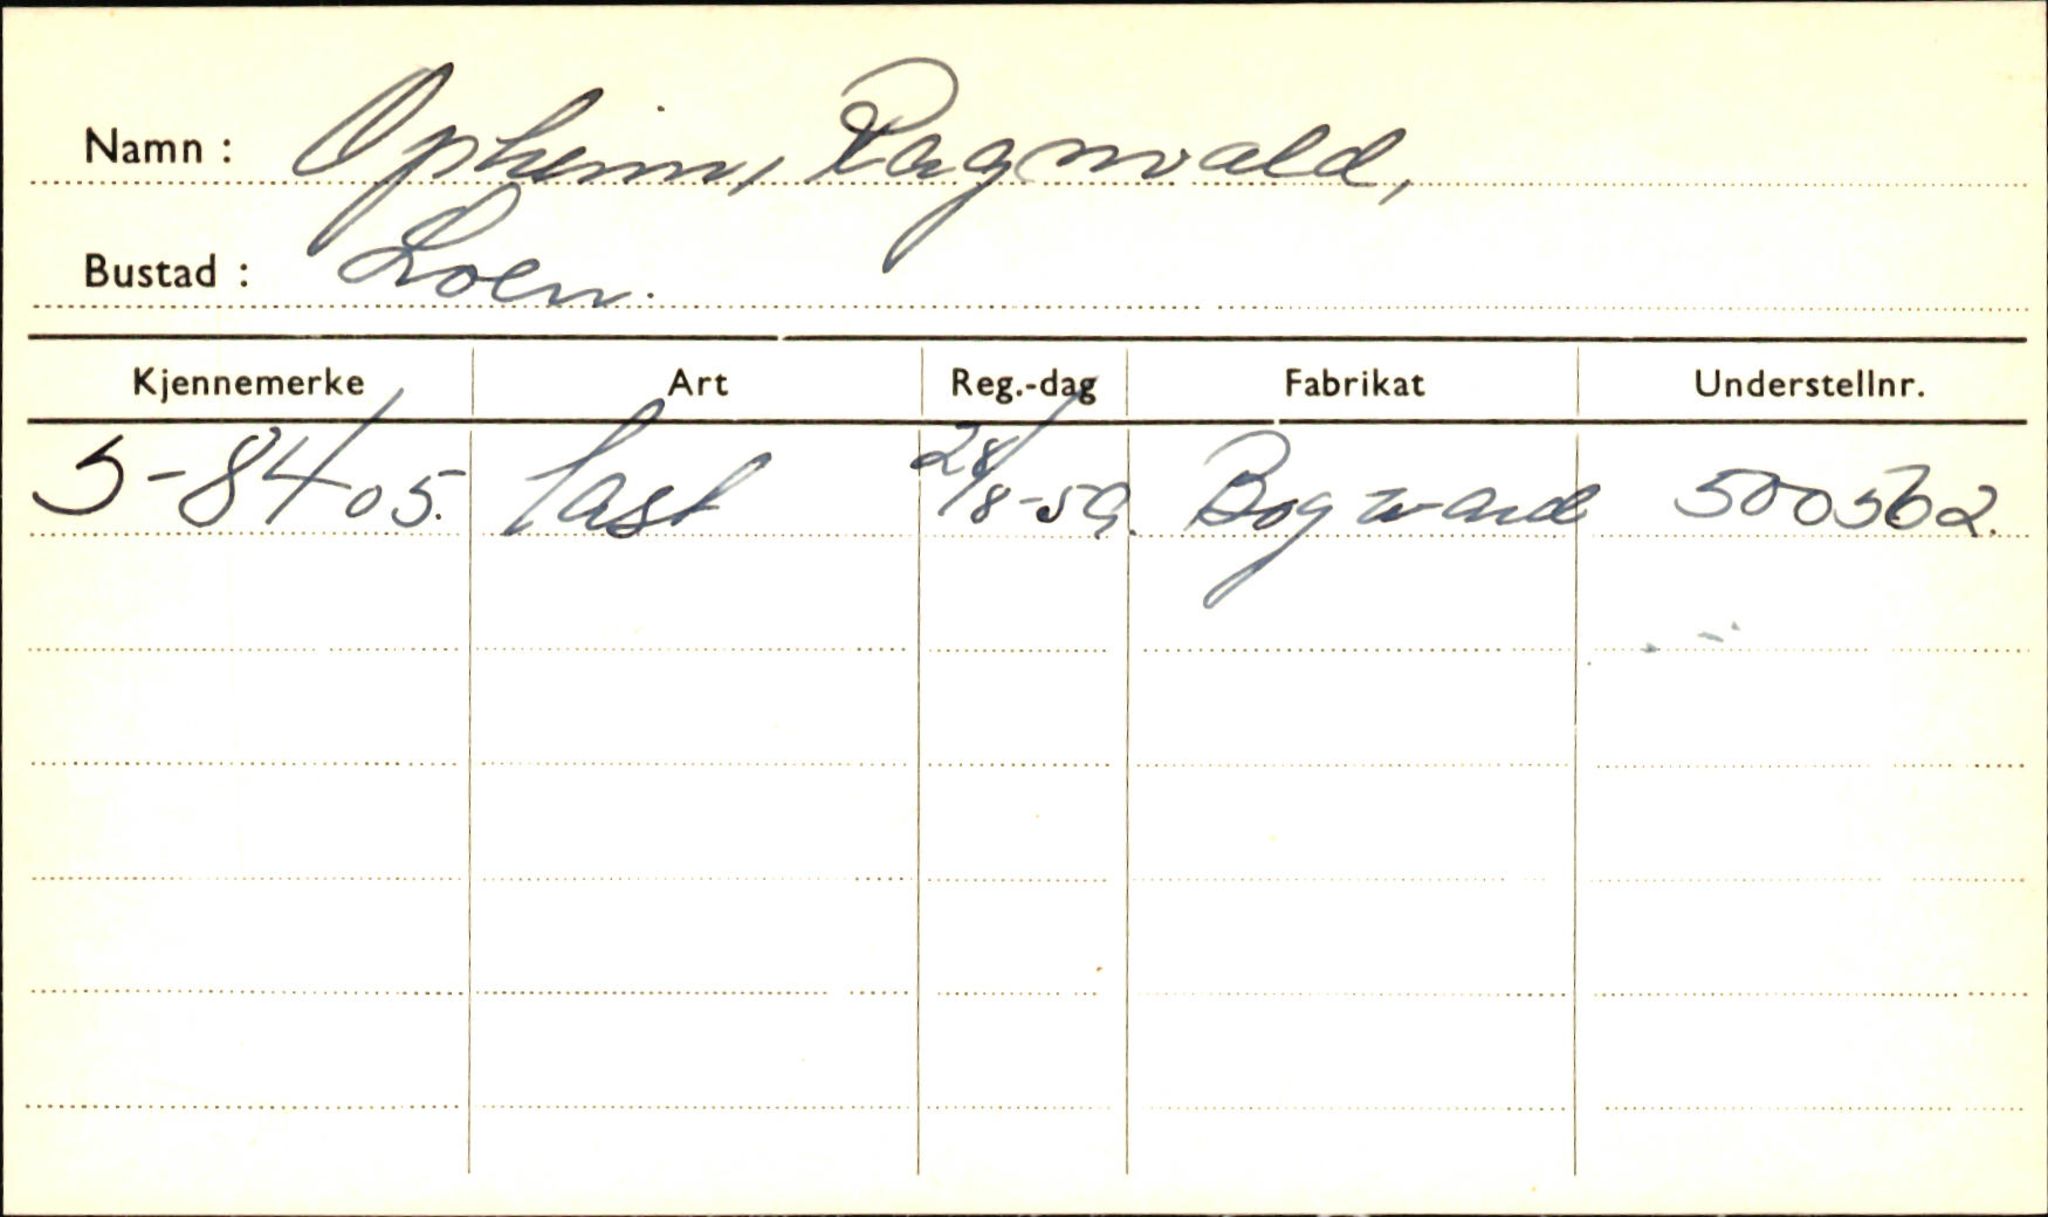 Namn : Opheim, Ragnvald,
Bustad : Loen.
Kjennemerke Art Reg.-dag Fabrikat Understellnr.
S-8405. last 28/8-59. Bogward 500562.